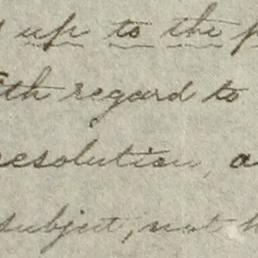 up to the
with regard to
resolution, a
subject, not h